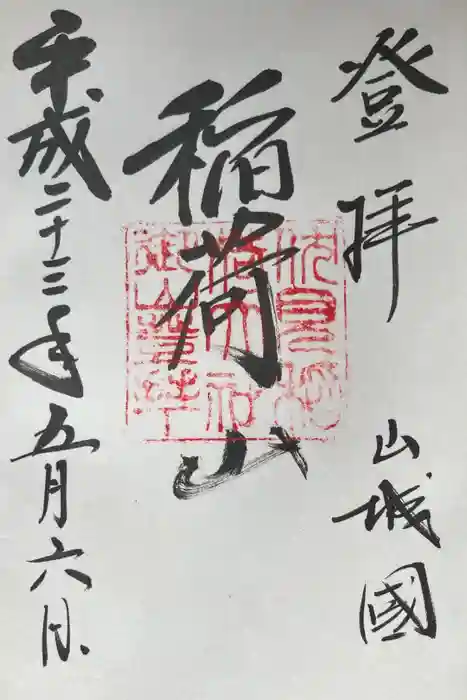 登拝
山城國
稲荷山
平成二十三年五月六日